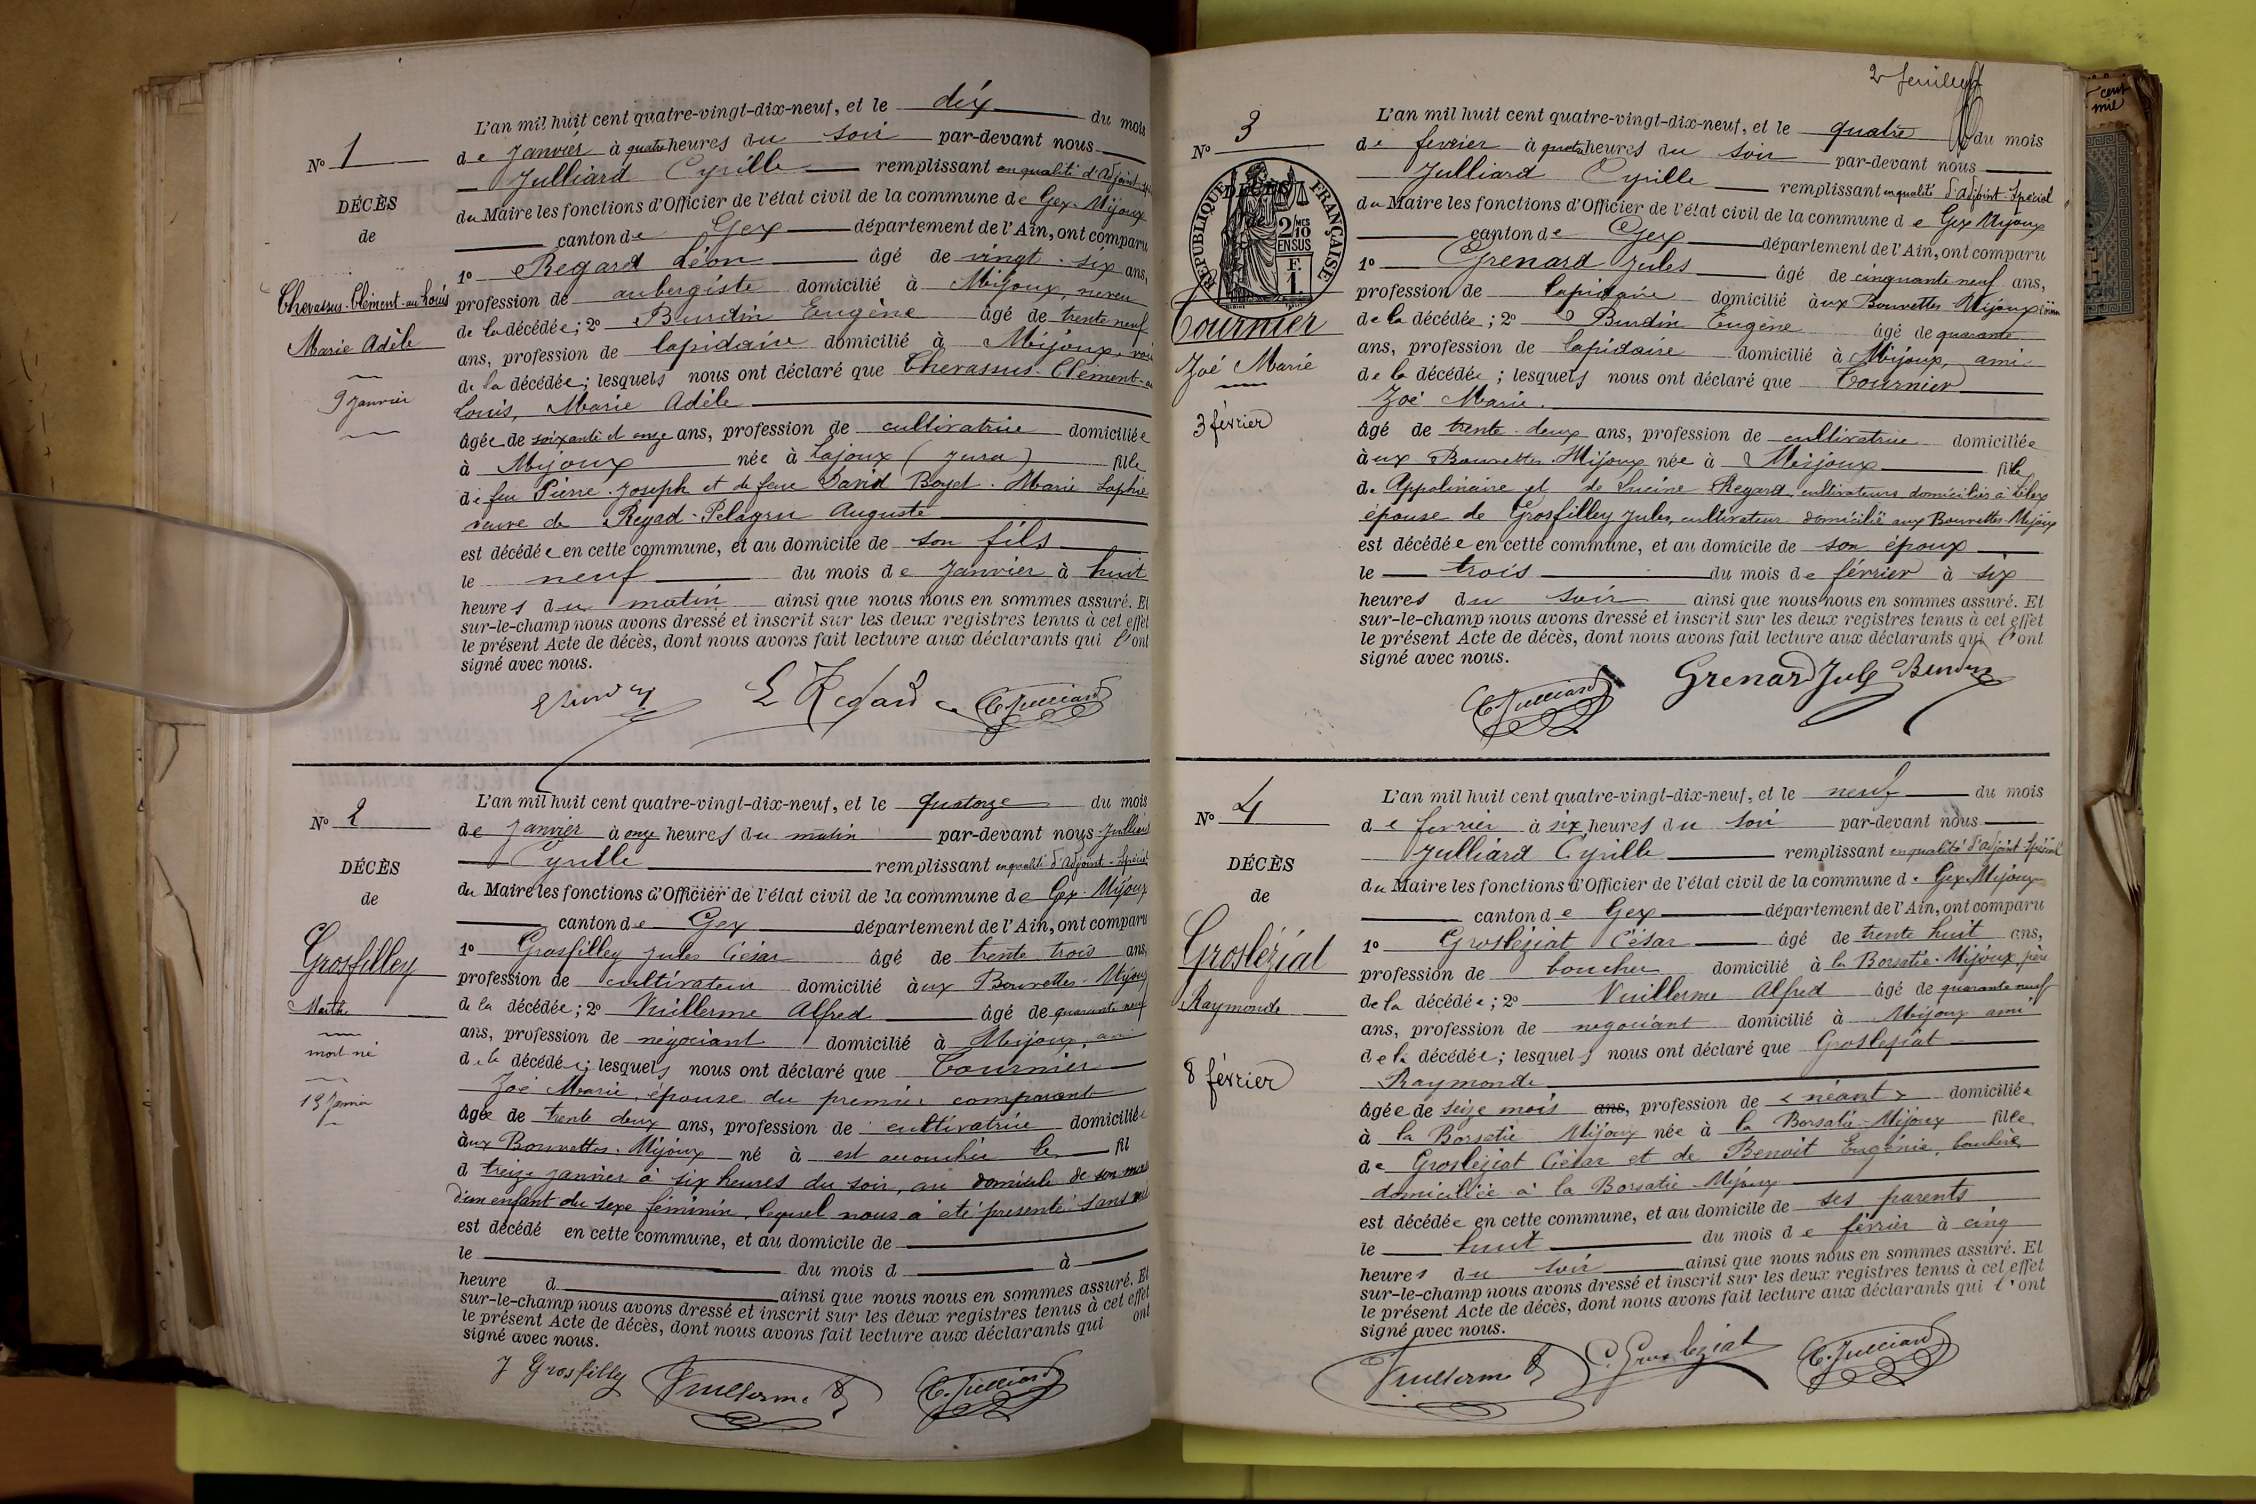 N° 1
DÉCÈS
de
Chevassus-Clément-au-Louis
Marie Adèle
9 Janvier
L'an mil huit cent quatre-vingt-dix-neuf, et le dix du mois
de Janvier à quatre heures du soir par-devant nous
Julliard Cyrille remplissant en qualité d'Adjoint
du Maire les fonctions d'Officier de l'état civil de la commune de Gex-Mijoux
canton de Gex département de l'Ain, ont comparu
1° Regard Léon âgé de vingt-six ans,
profession de aubergiste domicilié à Mijoux, neveu
de la décédée; 2° Burdin Eugène âgé de trente neuf
ans, profession de lapidaire domicilié à Mijoux,
de la décédée; lesquels nous ont déclaré que Chevassus-Clément-au
Louis, Marie Adèle
âgée de soixante et onze ans, profession de cultivatrice domiciliée
à Mijoux née à Lajoux (Jura) fille
de feu Pierre-Joseph et de feue David Boyet-Marie Sophie
veuve de Regad-Pelagru Auguste
est décédée en cette commune, et au domicile de son fils
le neuf du mois de Janvier à huit
heures du matin ainsi que nous nous en sommes assuré. Et
sur-le-champ nous avons dressé et inscrit sur les deux registres tenus à cet effet
le présent Acte de décès, dont nous avons fait lecture aux déclarants qui l'ont
signé avec nous.
L Regard C. Julliard
N° 2
DÉCÈS
de
Grosfilley
Marthe
mort né
13 Janvier
L'an mil huit cent quatre-vingt-dix-neuf, et le quatorze du mois
de Janvier à onze heures du matin par-devant nous Julliard
Cyrille remplissant en qualité d'Adjoint-Spécial
du Maire les fonctions d'Officier de l'état civil de la commune de Gex-Mijoux
canton de Gex département de l'Ain, ont comparu
1° Grosfilley Jules César âgé de trente trois ans,
profession de cultivateur domicilié àux Bouvettes-Mijoux
de la décédée; 2° Vuillerme Alfred âgé de quarante neuf
ans, profession de négociant domicilié à Mijoux, ami
de la décédée; lesquels nous ont déclaré que Tournier
Zoé Marie, épouse du premier comparant
âgée de trente deux ans, profession de cultivatrice domiciliée
àux Bouvettes-Mijoux né à est accouchée le fil
d treize janvier à six heures du soir, au domicile de son mari
d'un enfant du sexe féminin, lequel nous a été présenté sans vie
est décédé en cette commune, et au domicile de
le du mois d à
heure d ainsi que nous nous en sommes assuré. Et
sur-le-champ nous avons dressé et inscrit sur les deux registres tenus à cet effet
le présent Acte de décès, dont nous avons fait lecture aux déclarants qui ont
signé avec nous.
J Grosfilley Vuillerme C. Julliard
2e feuillet
N° 3
DÉCÈS
RÉPUBLIQUE FRANÇAISE
2/10 EN SUS
F. 1
Tournier
Zoé Marie
3 février
L'an mil huit cent quatre-vingt-dix-neuf, et le quatre du mois
de fevrier à quatre heures du soir par-devant nous
Julliard Cyrille remplissant en qualité d'Adjoint-Spécial
du Maire les fonctions d'Officier de l'état civil de la commune de Gex Mijoux
canton de Gex département de l'Ain, ont comparu
1° Grenard Jules âgé de cinquante neuf ans,
profession de lapidaire domicilié àux Bouvettes Mijoux
de la décédée; 2° Burdin Eugène âgé de quarante
ans, profession de lapidaire domicilié à Mijoux, ami
de la décédée; lesquels nous ont déclaré que Tournier
Zoé Marie.
âgé de trente-deux ans, profession de cultivatrice domiciliée
àux Bouvettes-Mijoux née à Mijoux fille
de Appolinaire et de Lucine Regard, cultivateurs domiciliés à
épouse de Grosfilley Jules, cultivateur domicilié aux Bouvettes-Mijoux
est décédée en cette commune, et au domicile de son époux
le trois du mois de février à six
heures du soir ainsi que nous nous en sommes assuré. Et
sur-le-champ nous avons dressé et inscrit sur les deux registres tenus à cet effet
le présent Acte de décès, dont nous avons fait lecture aux déclarants qui l'ont
signé avec nous.
C. Julliard Grenard Jules Burdin
N° 4
DÉCÈS
de
Groslézíat
Raymonde
8 février
L'an mil huit cent quatre-vingt-dix-neuf, et le neuf du mois
de fevrier à six heures du soir par-devant nous
Julliard Cyrille remplissant en qualité d'adjoint Spécial
du Maire les fonctions d'Officier de l'état civil de la commune de Gex-Mijoux
canton de Gex département de l'Ain, ont comparu
1° Grosléziat César âgé de trente huit ans,
profession de boucher domicilié à la Borsatie-Mijoux père
de la décédée; 2° Vuillerme Alfred âgé de quarante neuf
ans, profession de negociant domicilié à Mijoux ami
de la décédée; lesquels nous ont déclaré que Groslesiat
Raymonde
âgée de seize mois ans, profession de < néant > domiciliée
à la Borsatie Mijoux née à la Borsatie-Mijoux fille
de Groslézíat César et de Benoit Eugénie, bouchère
domiciliée à la Borsatie-Mijoux
est décédée en cette commune, et au domicile de ses parents
le huit du mois de février à cinq
heures du soir ainsi que nous nous en sommes assuré. Et
sur-le-champ nous avons dressé et inscrit sur les deux registres tenus à cet effet
le présent Acte de décès, dont nous avons fait lecture aux déclarants qui l'ont
signé avec nous.
Vuillerme C. Grosleziat C. Julliard
cent
mil